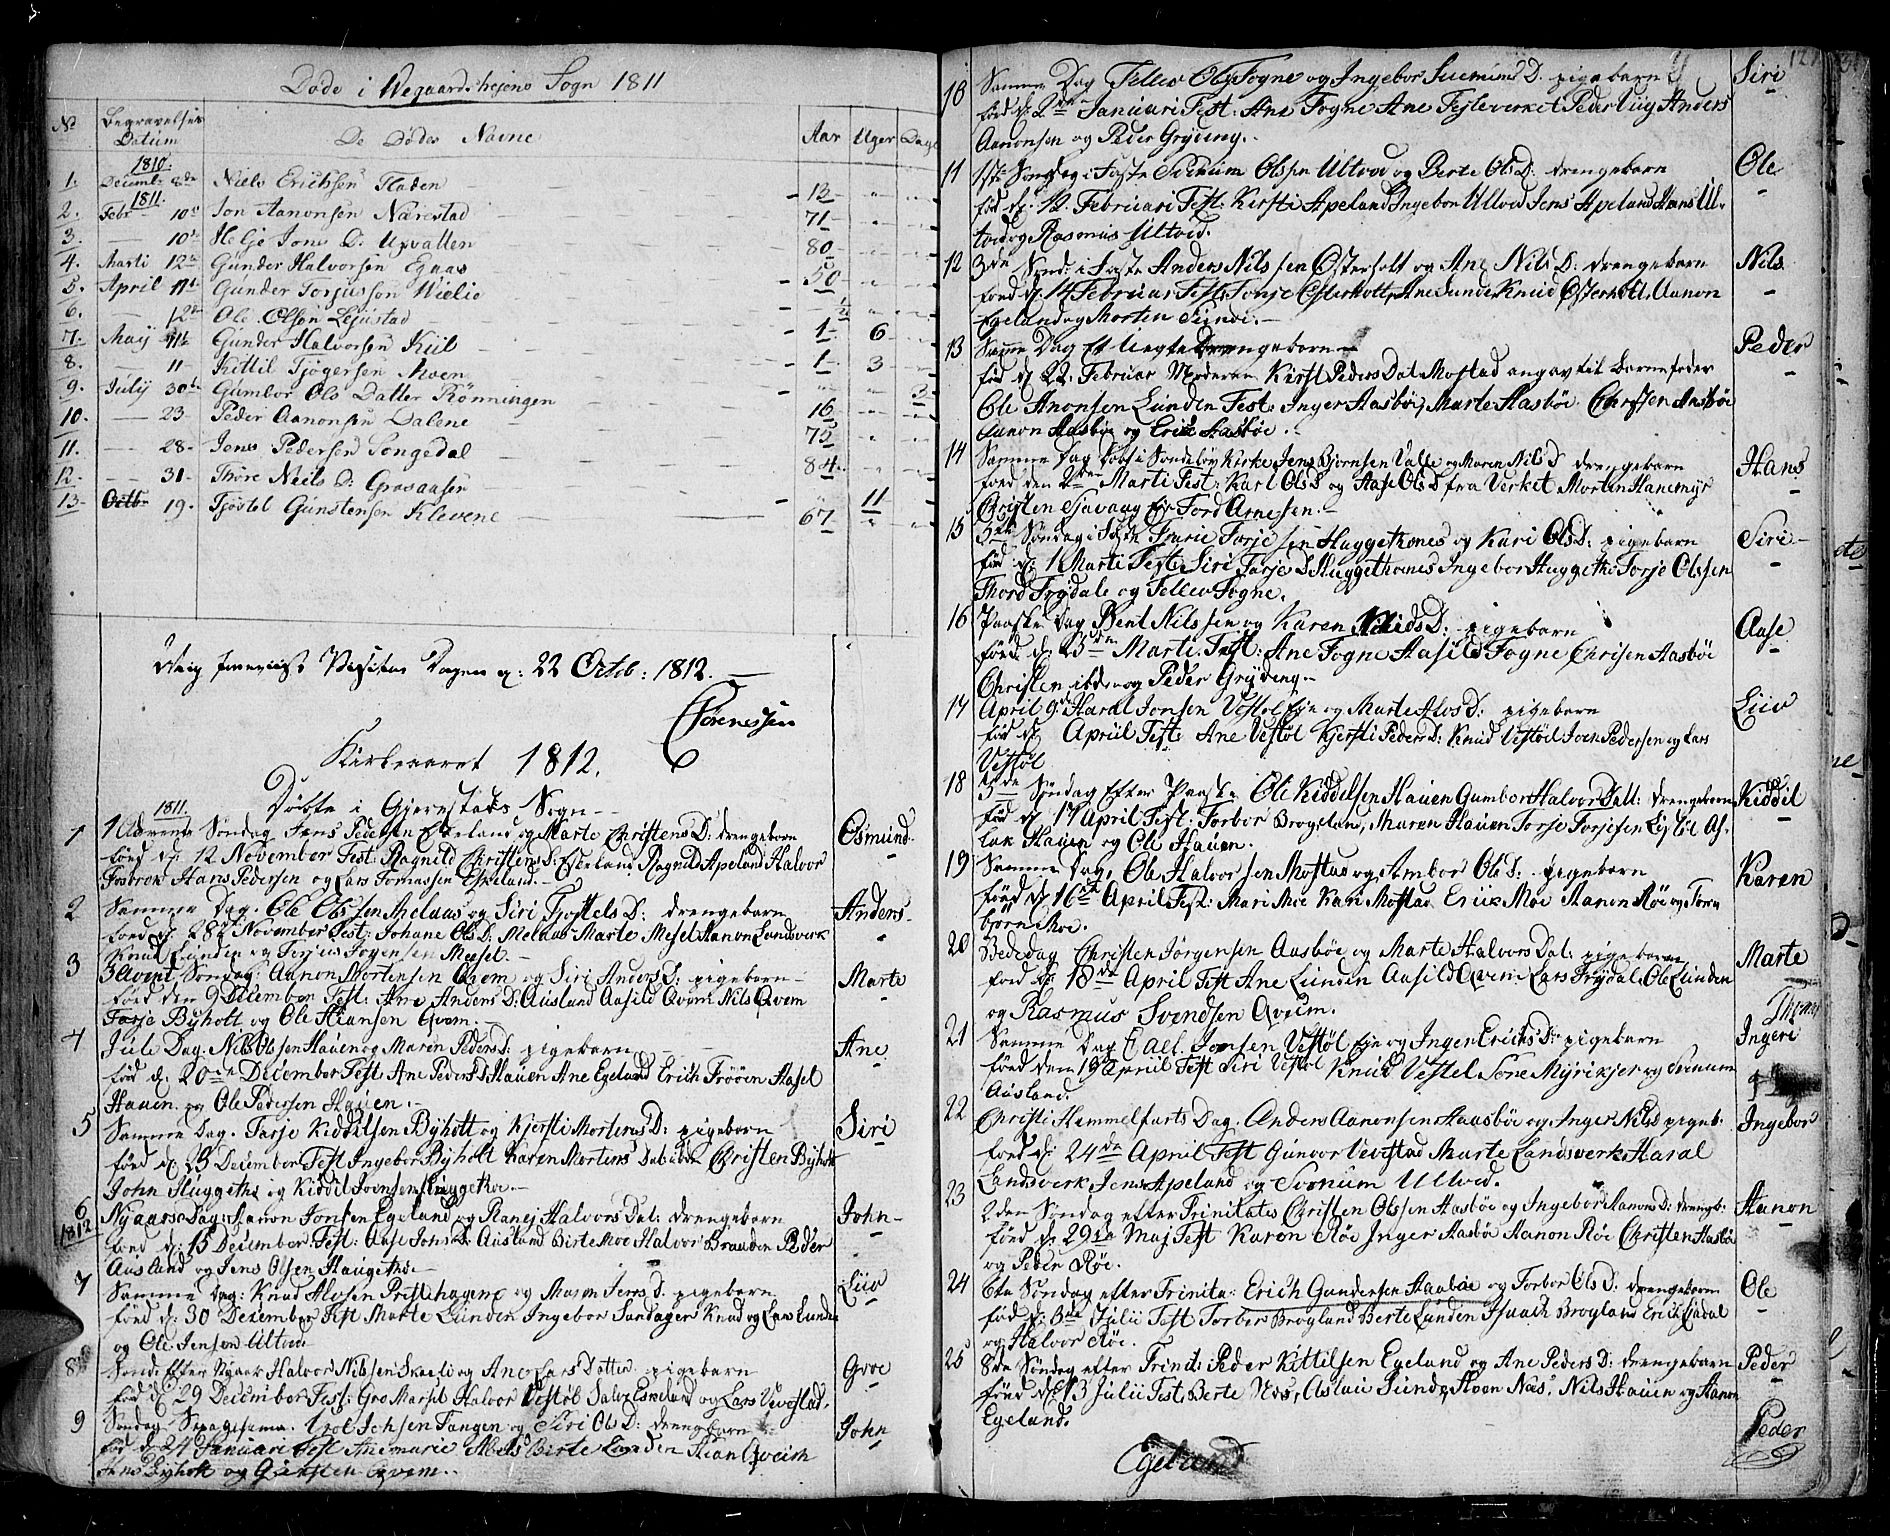 Døde i Wegaardsheiens Sogn 1811
No Begravelses Datum De Dødes Navne Aar Uger Dage
1810.
1. Decemb: 8de Niels Erichsen Fladen 12
1811.
2. Febr 10de Jon Aanonsen Nærestad 71
3. 10de Helje Jons D: Upvatten 80
4. Marti 12te Gunder Halvorsen Egaas 50
5. April 11te Gunder Torjusson
6. 12te Ole Olsen Lejustad
7. Maij Gunder Halvorsen Kiil 1 6
8. 11 Kittil Tjøgersen Moen 1 3
9. Julij 30te Gumbor Ols Datter Rønningen 3
10. 23 Peder Aanonsen Dalene 16
11. 28 Jens Pedersen Songedal 75
12. 31 Thore Neils D: Grasaasen 84
13 Octb 19 Tjøstel Gunstensen Klevene 67 11
Visitas Dagen d: 22 Octob: 1812.
Sørenssen
Kirkeaaret 1812.
Døbte i Gjerestads Sogn
1811.
1 1 Advents Søndag Jens Pedersen Eskeland og Marte Christens D: drengebarn Osmund
føed d: 12 November Test: Ragnild Christens D: Eskeland Ragnild Apeland Halvor
Fosbrok Hans Pedersen og Lars Tomassen Eskeland.
2 Samme Dag. Ole Olssen Melaas og Siri Tjostels D: drengebarn Anders
føed d: 28de November Test: Johane Ols D: Melaas Marte Mesel Aanon Landsverk
Knud Lunden og Torjus Jogensen Mesel.
3 3 Avent Søndag: Aanon Mortensen Qvem og Siri Anders D: pigebarn Marte
føed den 9 December Test: Ane Anders D: Ausland Aasild Qvem Nils Qvem
Tarje Byholt og Ole Stiansen Qvem.
4 Jule Dag. Nils Olssen Hauen og Maren Peders D: pigebarn Ane
fød d: 20de December Test Ane Peders D Hauen Ane Egeland Erich Trøøen Aasel
Hauen og Ole Pedersen Hauen.
5 Samme Dag. Tarje Kiddilsen Byholt og Kjersti Mortens D: pigebarn Siri
føed d: 23 December Test Ingebor Byholt Karen Mortens Dat: Christen Byholt
John Huggethe og Kiddil Joensen Huggethe.
6 Nyaars Dag: Aanon Jonsen Egeland og Ranej Halvors Dat: drengebarn John
1812 føed d: 15 December: Test: Aase Johns D: Ausland Birte Moe Halvor Braaden Peder
Ausland og Jens Olsen Haugeths.
7 Samme Dag: Knud Alvsen og Maren Jens D. pigebarn Liiv
føed d: 30 December Test Marte Lunden Ingebor Sandager Knud og Lars Lunden
og Ole Jensen Ultvei
8 Sønd: Efter Nyaar Halvor Nilsen Skarli og Ane Lars Datter pigebarn Groe
fød d: 29 December Test: Gro Marsel Halvor Vestøl Eskeland og Lars Vevstad.
9 Søndag Sepagisima. Jochsen Tangen og Siri Ols D: drengebarn John
fød d: 24 Januari Test Anemarie Birte Lunden Stian Qveim
Byholt og Gunsten Qvem.
10 Samme Dag Tellev Olss Fogne og Ingebor Suemund D. pigebarn Siri
fød d: 2den Januari Test: Ane Fogne Ane Peder Anders
Aanonsen og Peder Gryting.
11 1ste Søndag i Faste Suenum Olssen Ultved og Berte Ols D: drengebarn Ole
fød d: 12 Februari Test: Kirsti Apeland Ingebor Ultved Jens Apeland Hans Ul-
tved og Rasmus Ultved.
12 3de Sønd: i Faste Anders Nilssen Østerholt og Ane Nils D: drengebarn Nils
føed d: 14 Februar Test: Tonje Østerholt, Ane Sunde Knud Østerholt Aanon
Egeland og Morten Sunde.
13 Samme Dag Et Uegte Drengebarn Peder
fød d: 22: Februar Moderen Kirst Peders Dat Mostad angav til Barnefader
Ole Anonsen Lunden Test: Inger Aasbøe, Marte Aasbøe. Christen Aasbøe
Aanon Aasbøe og Erik Aasbøe.
14 Samme Dag Døbt i Søndeløv Kirke Jens Bjornsen Valle og Maren Nils D drengebarn Hans
føed den 2den Marti Test: Karl Ols D og Aase Ols D fra Verket Morten Hanemyr
Christen Tord Arnesen.
15 5te Søndag i Faste Tarje Tarjesen Huggethones og Kari Ols D: pigebarn Siri
fød d: 1 Marte Test: Siri Tarje D Huggethones Ingebor Huggeth: Torje Olssen
Thord Trydale og Tellev Fogne.
16 Paaske Dag Bent Nilssen og Karen D: pigebarn Aase
føed d: 23de Marti Test: Ane Fogne Aasild Fogne Chrisen Aasbøe
Christen ibd: og Peder Gryting
17 April 9de Haral Jonsen Vestøl Eje og Marte Alvs D: pigebarn Liiv
fød d: Apriil Test: Ane Vestøl Kjersti Peders D: Knud Vestøel Joen Pedersen og Lars
Vestøl
18 3de Søndag Efter Paaske Ole Kiddelsen Hauen Gumbor Halvor Datt: drengebarn Kiddil
fød d: 17 April Test: Torbor Brogelan, Maren Hauen Torje Torjesen Lejstøl As-
lak Hauen og Ole Hauen.
19 Samme Dag, Ole Halvorsen Mostad og Ambor Ols D: pigebarn Karen
fød d: 16de April Test: Mari Moe Kari Mostad Erik Moe Aanon Røe og Torn
bjørn Moe.
20 Bededag Christen Jørgensen Aasbøe og Marte Halvors Dat: pigebarn Marte
føed d: 18de April Test Ane Lunden Aasild Qvem Lars Trydal Ole Lunden
og Rasmus Svendsen Qveim.
21 Samme Dag Jonsen Vestøl Eje og Inger Erichs D: pigebarn Ingeri
føed den 19 Apriil Test Siri Vestøl Knud Vestel Tore Myrikjer og Suenum
Ausland.
22 Christi Hemmelfarts Dag. Anders Aanonsen Haasbøe og Inger Nils D pigeb: Ingebor
føed d: 24de April Test Gunvor Vevstad Marte Landsverk Haral
Landsverk Jens Apeland og Svonum Ultved.
23 2den Søndag efter Trinitates Christen Olssen Aasbøe og Ingebor Aanons D: drengb: Aanon
føed d: 29de Maj Test Karen Røe Inger Aasbøe Aanon Røe Christen Aasbøe
og Peder Røe.
24 6te Søndag efter Trinita: Erich Gundersen Haabøe og Torbor Ols D: drengebarn Ole
fød d: 3de Julii Test Torber Brogland Berte Lunden Isaach Brogland Erich Lidal
og Halvor Røe.
25 8de Søndag efter Trinit: Peder Kittilsen Egeland og Ane Peders D: drengebarn Peder
føed d: 13 Julii Test Berte Næs, Aslau Sunde, Aven Næs, Nils Hauen og Aanon
Egeland.
Egeland
Peder